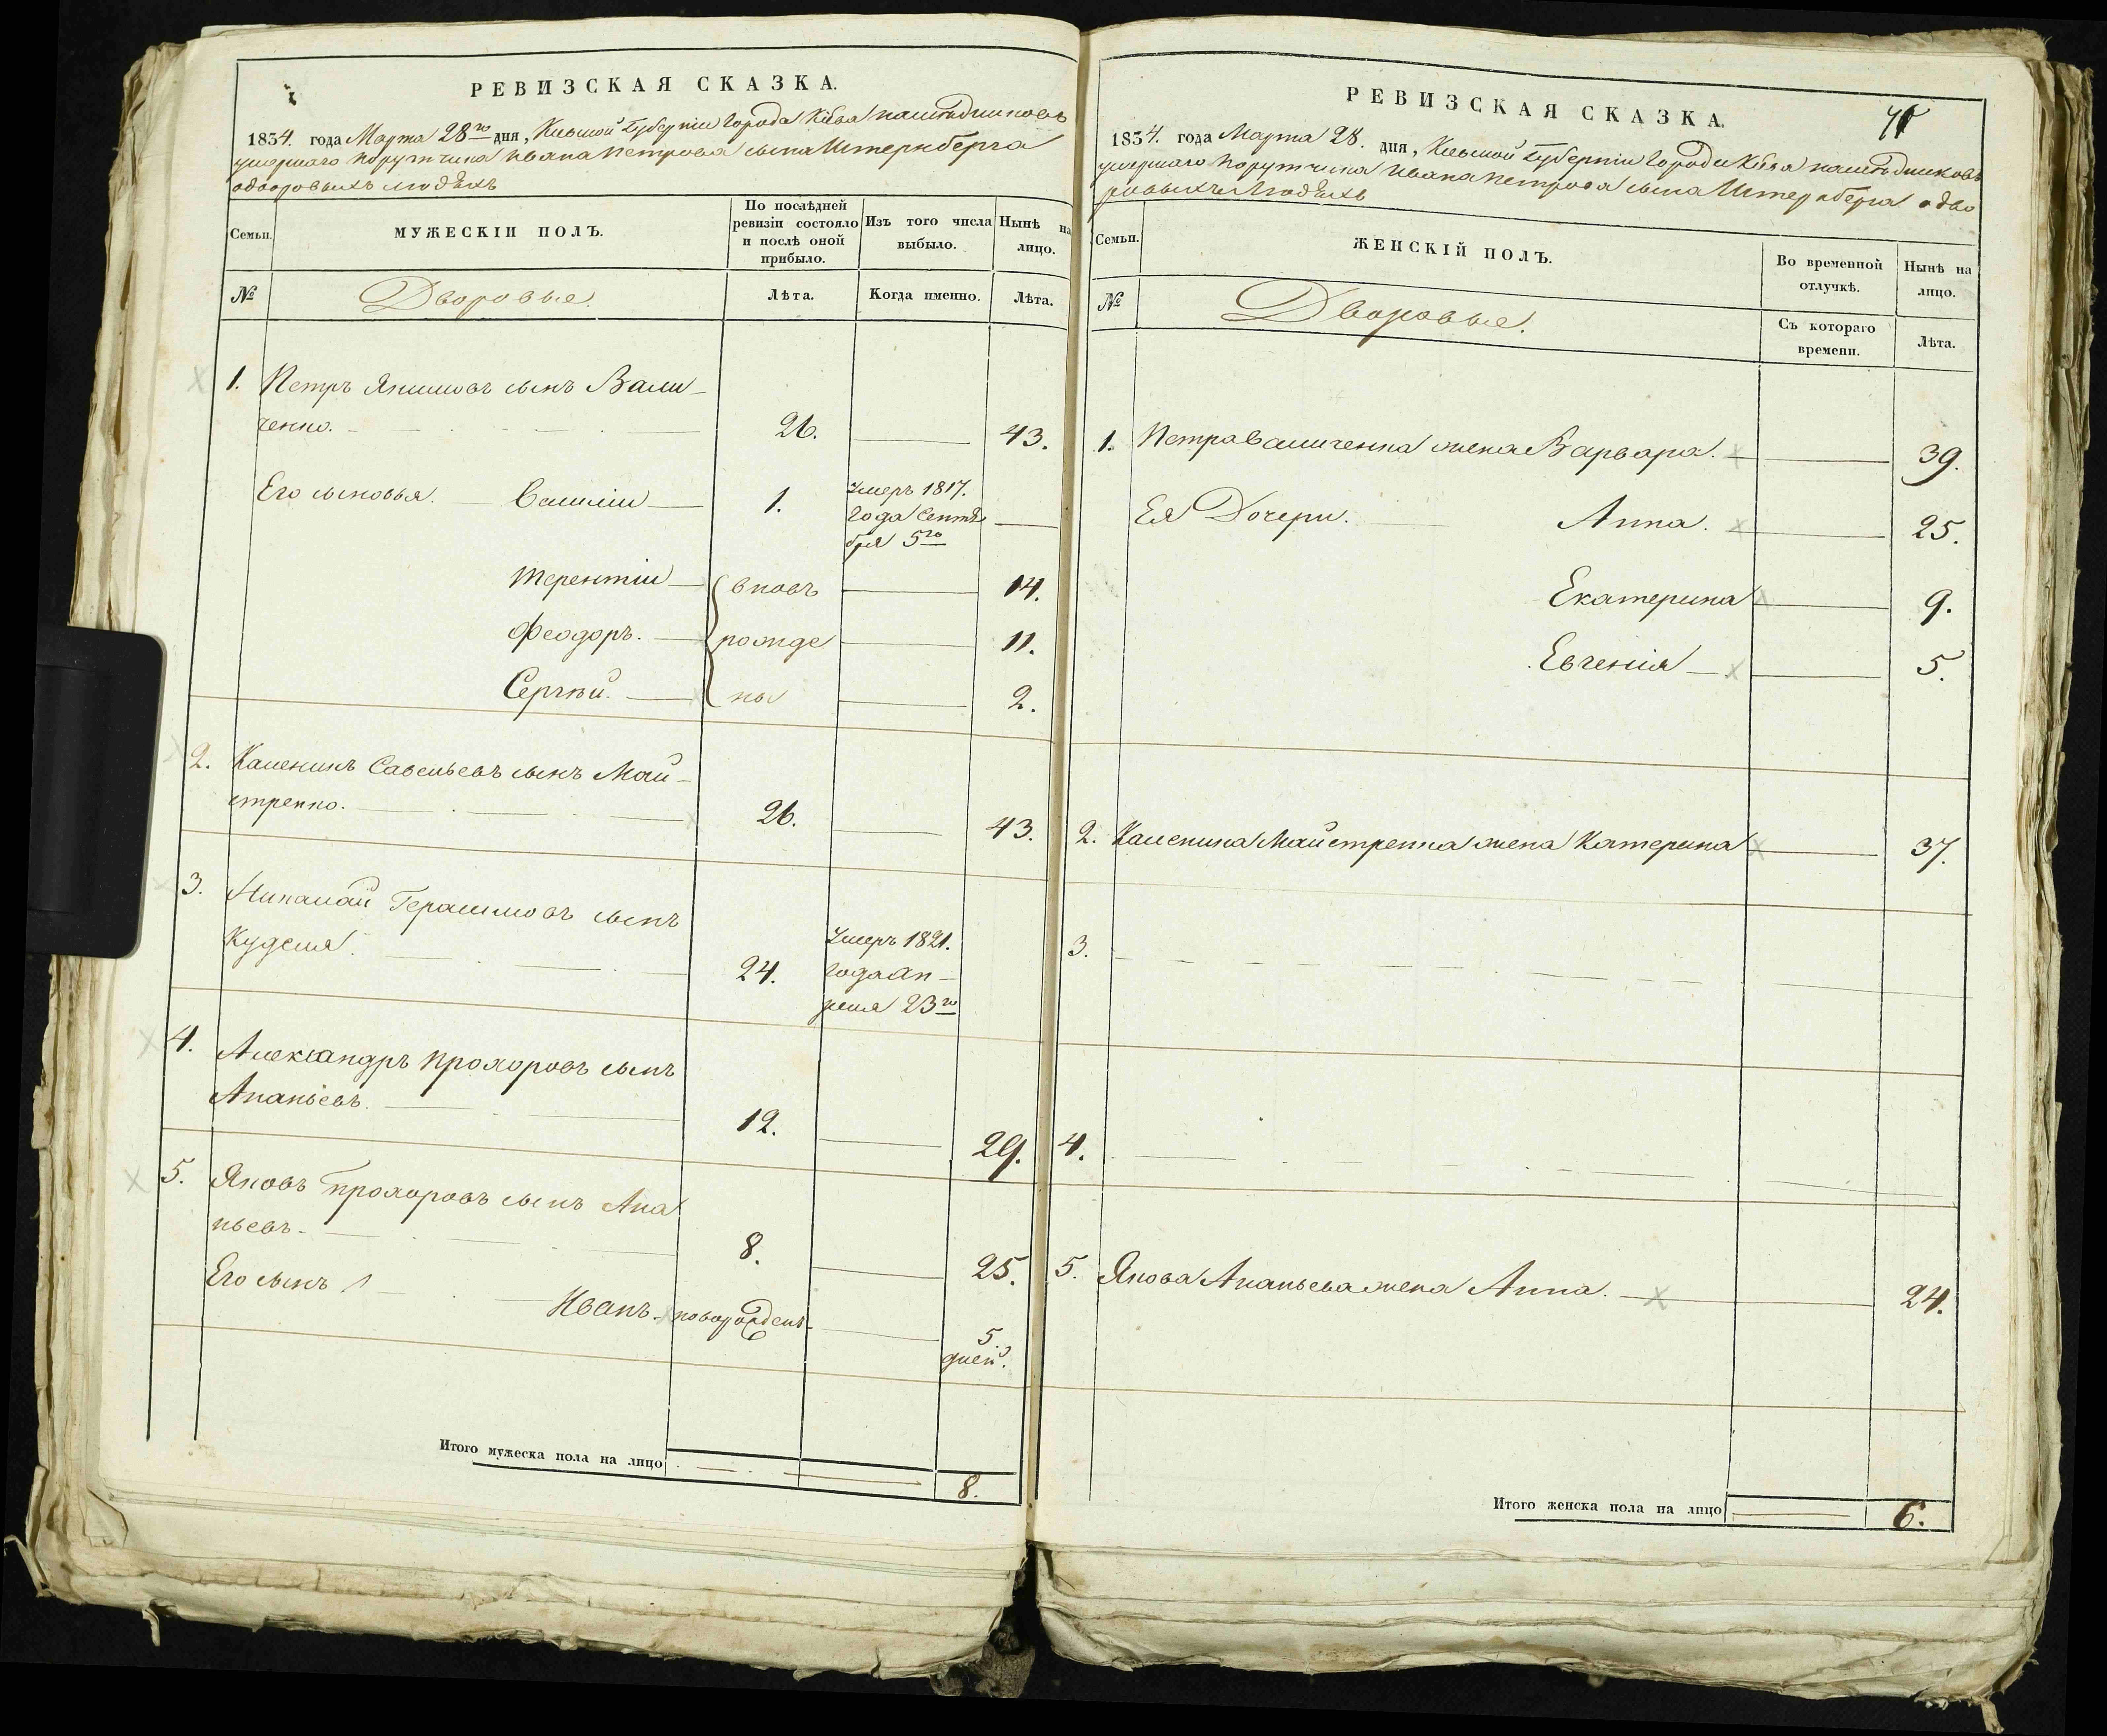 РЕВИЗСКАЯ СКАЗКА.
1834. года Марта 28го дня, Киевской Губернии Города Кіева наследниковъ
умершаго Порутчика Ивана Петрова сына Штернберга
о дворовыхъ людѣхъ
Семьи.
МУЖЕСКІЙ ПОЛЪ.
По послѣдней ревизіи состояло и послѣ оной прибыло.
Изъ того числа выбыло.
Нынѣ на лицо.
№
Дворовые.
Лѣта.
Когда именно.
Лѣта.
1. Петръ Якимовъ сынъ
ченко. 26. 43.
Его сыновья. Василіи 1. Умеръ 1817.
года Сентя
бря 5го
Терентіи вновь 14.
Феодоръ. рожде 11.
Сергѣй. ны 2.
2. Каленикъ Савельевъ сынъ Май-
стренко. 26. 43.
3. Николай Герасимовъ сынъ
Куделя. 24. Умеръ 1821.
года Ап-
реля 23го
4. Александръ Прохоровъ сынъ
Ананьевъ. 12. 29.
5. Яковъ Прохоровъ сынъ Ана
ньевъ. 8. 25.
Его сынъ 1 Иванъ. новорожденъ 5.
дней.
Итого мужеска пола на лицо 8.
РЕВИЗСКАЯ СКАЗКА.
1834. года Марта 28. дня, Киевской Губерніи Города Кіева наследниковъ
умершаго Порутчика Ивана Петрова сына Штернберга о дво
ровыхъ Людѣхъ
Семьи.
ЖЕНСКІЙ ПОЛЪ.
Во временной отлучкѣ.
Нынѣ на лицо.
№
Дворовые.
Съ котораго времени.
Лѣта.
1. Петра жена Варвара. 39.
Ея Дочери. Анна. 25.
Екатерина 9.
Евгенія 5.
2. Каленика Майстренка жена Катерина 37.
3.
4.
5. Якова Ананьева жена Анна. 24.
Итого женска пола на лицо 6.